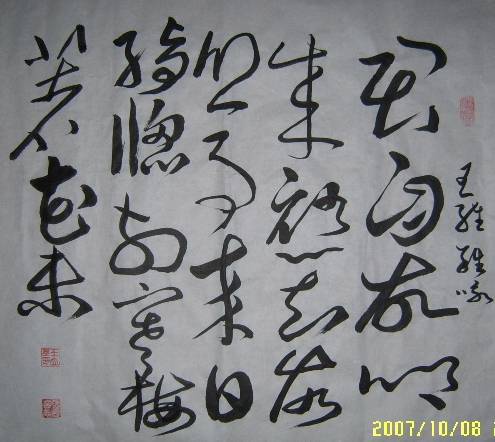 王維雜咏
君自故鄉
来應知故
鄉事来日
綺牕前寒梅
著花未
2007/10/08